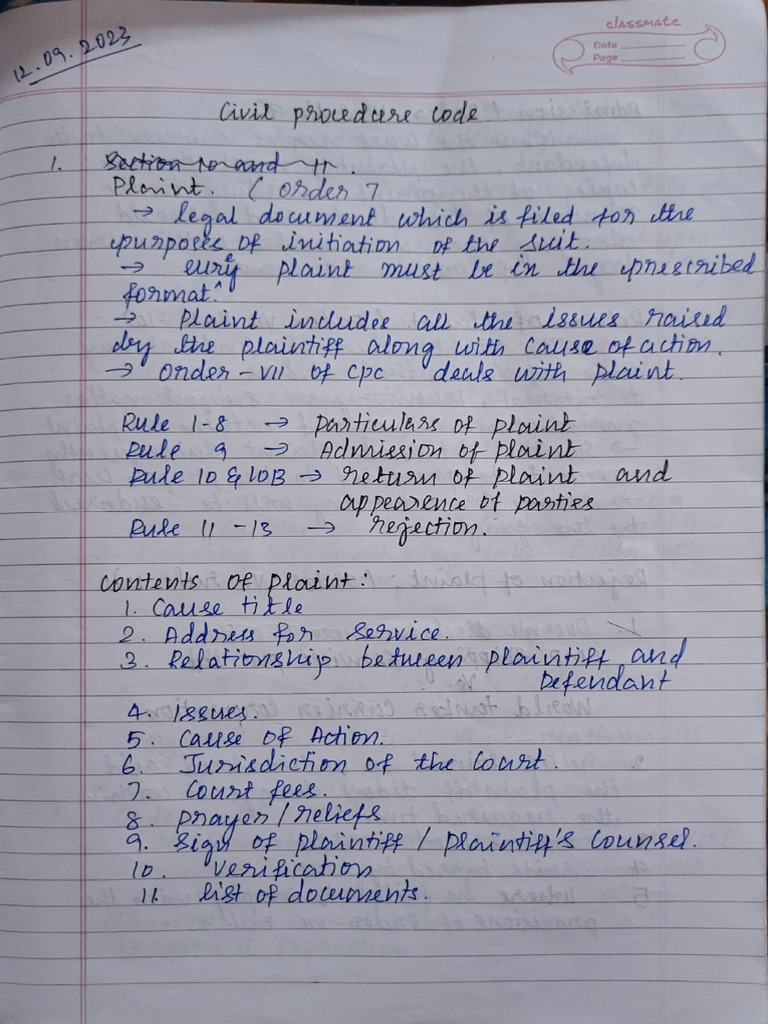 12.09.2023
classmate
Date
Page
Civil procedure code.
1. Section 10 and 11.
Plaint. ( order 7
→ legal document which is filed for the
purposes of initiation of the suit.
→ every plaint must be in the prescribed
format.
→ Plaint includes all the issues raised
by the plaintiff along with cause of action.
→ Order-VII of CPC deals with plaint.
Rule 1-8 → Particulars of plaint
Rule 9 → Admission of plaint
Rule 10 & 10B → return of plaint and
appearence of parties
Rule 11-13 → rejection.
Contents of plaint:
1. Cause title
2. Address for service.
3. Relationship between plaintiff and
Defendant
4. Issues.
5. Cause of Action.
6. Jurisdiction of the Court.
7. Court fees.
8. prayer/reliefs
9. Sign of plaintiff / plaintiff's counsel.
10. Verification
11. list of documents.